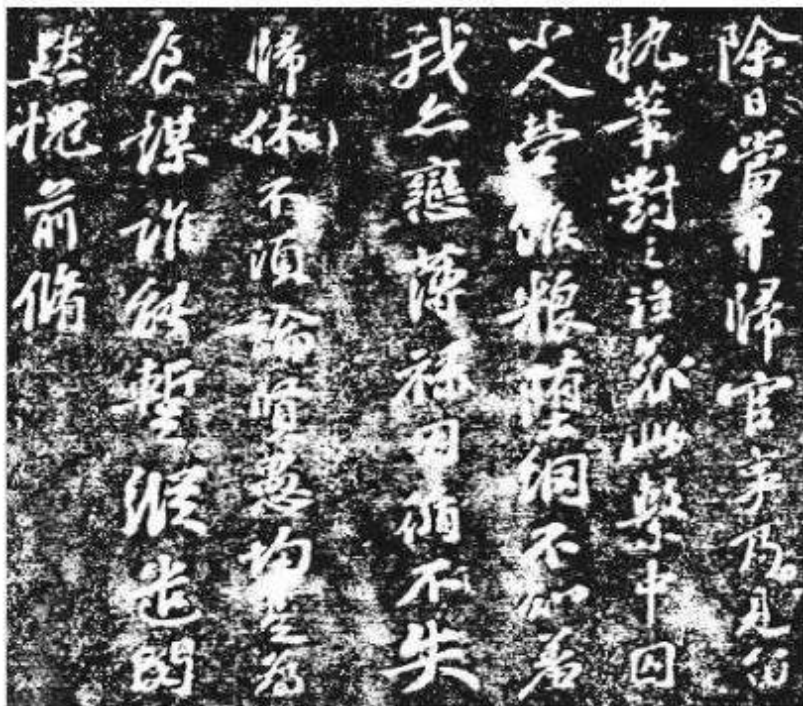 除日當早歸官事乃見留
執筆對之泣哀此繫中囚
小人營餱粮墮網不知羞
我亦戀薄祿因循不失
歸休不須論賢愚均是為
食謀誰能暫縱遣閔
然愧前脩